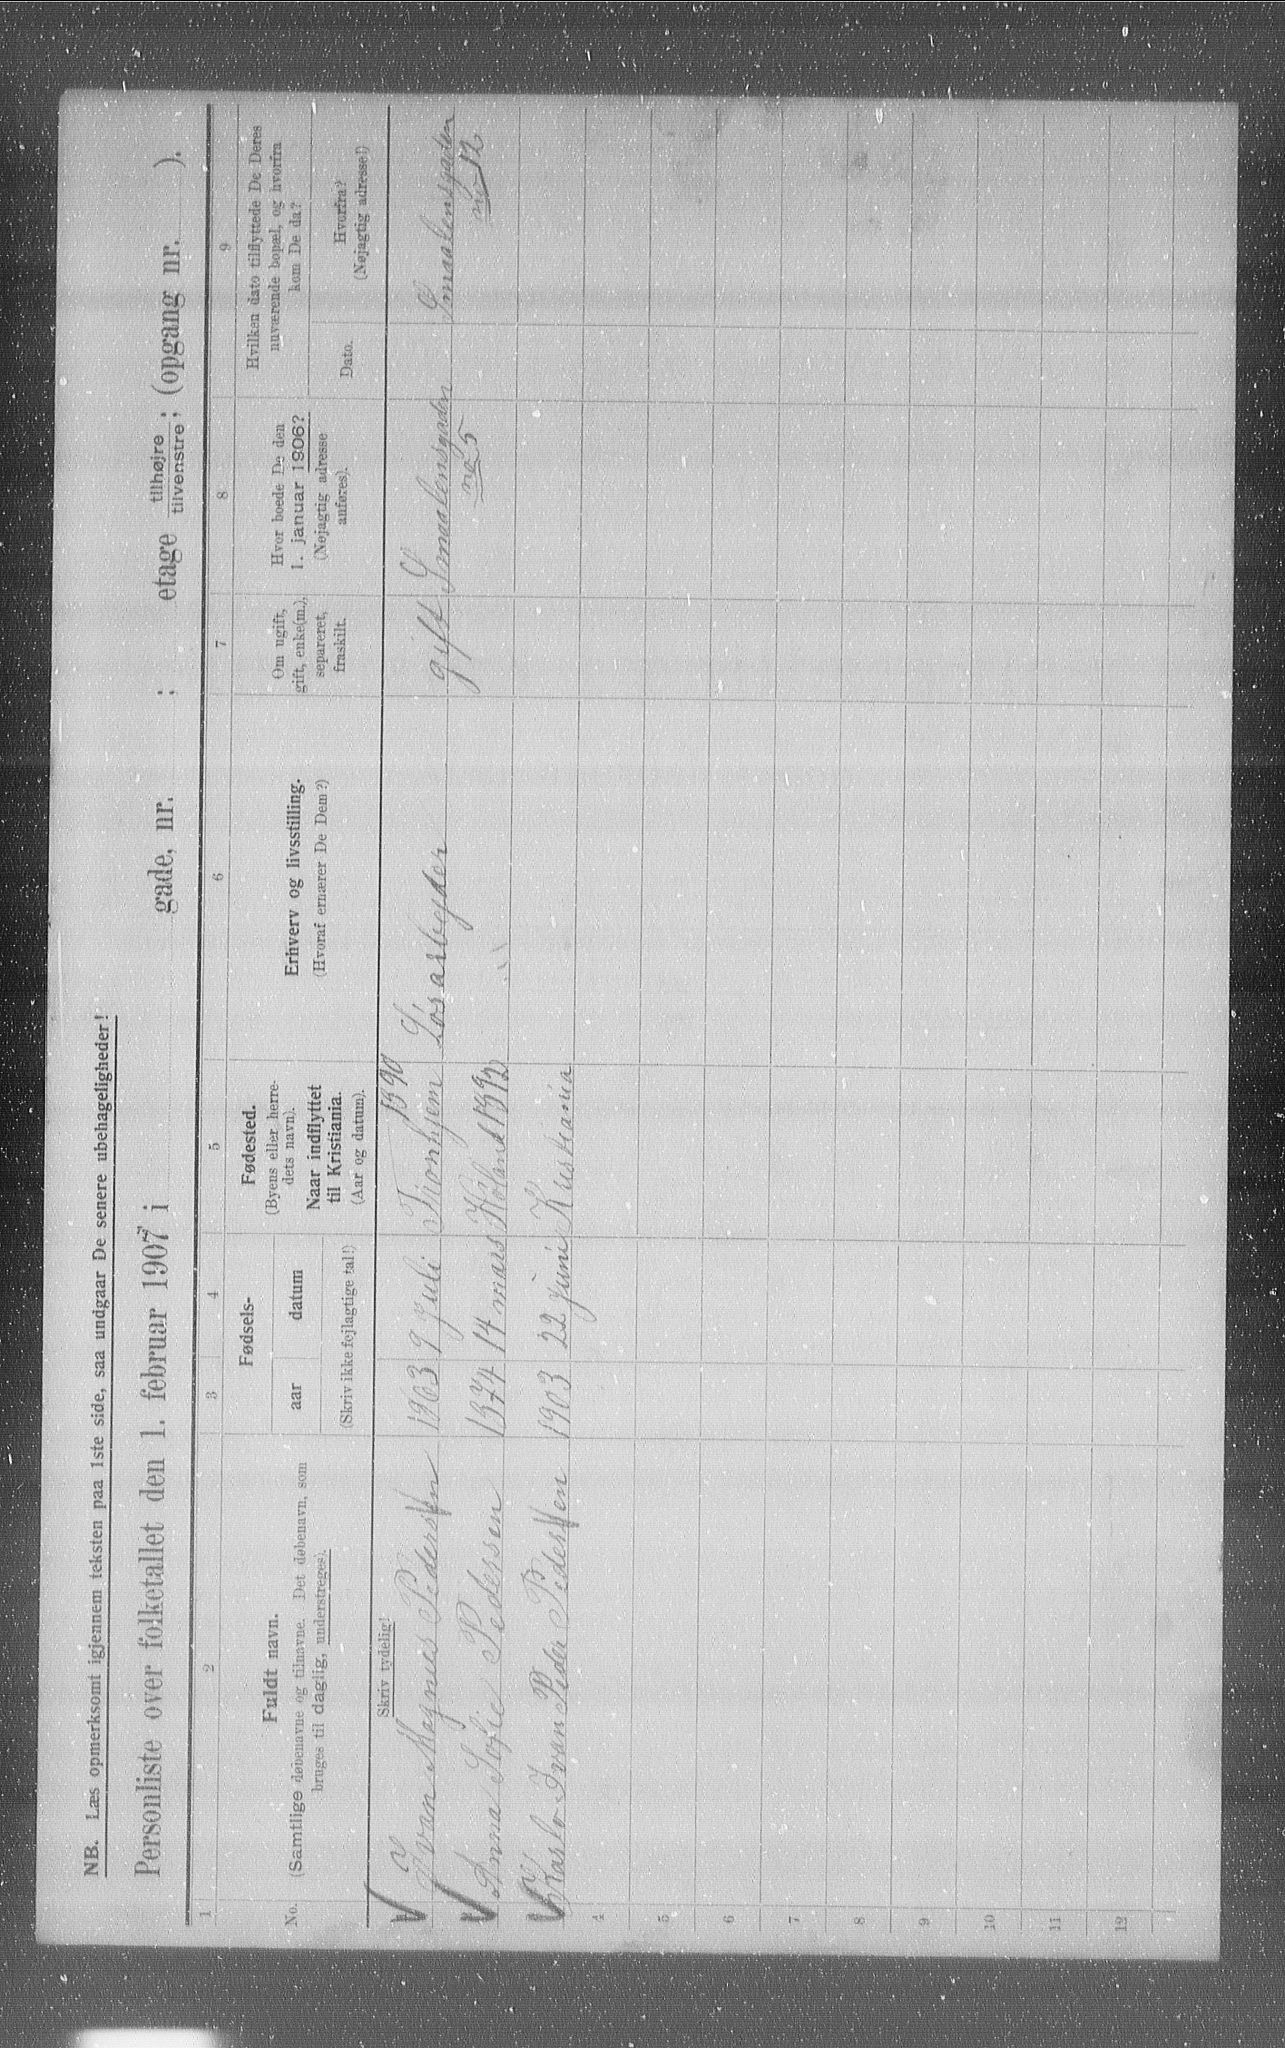 NB. Læs opmerksomt igjennem teksten paa 1ste side, saa undgaar De senere ubehageligheder!
Personliste over folketallet den 1. februar 1907 i gade, nr. ; etage tilhøjre ; (opgang nr. ).
tilvenstre ;
1 2 3 4 5 6 7 8 9
No.
Fuldt navn.
(Samtlige døbenavne og tilnavne. Det døbenavn, som
bruges til daglig, understreges).
Fødsels-
aar datum
(Skriv ikke fejlagtige tal!)
Fødested.
(Byens eller herre-
dets navn).
Naar indflyttet
til Kristiania.
(Aar og datum).
Erhverv og livsstilling.
(Hvoraf ernærer De Dem?)
Om ugift,
gift, enke(m.),
separeret,
fraskilt.
Hvor boede De den
1. januar 1906?
(Nøjagtig adresse
anføres).
Hvilken dato tilflyttede De Deres
nuværende bopæl, og hvorfra
kom De da?
Dato.
Hvorfra?
(Nøjagtig adresse!)
Skriv tydelig!
1890
Ivan Magnus Pedersen 1903 9 juli Tronhjem Løsarbejder gift Smaalensgaden Smaalensgaden
no 5 no 12
Anna Sofie Pederssen 1874 14 mars Høland 1892
Karlo Ivan Peder Pedersen 1903 22 juni Kristiania
4
5
6
7
8
9
10
11
12